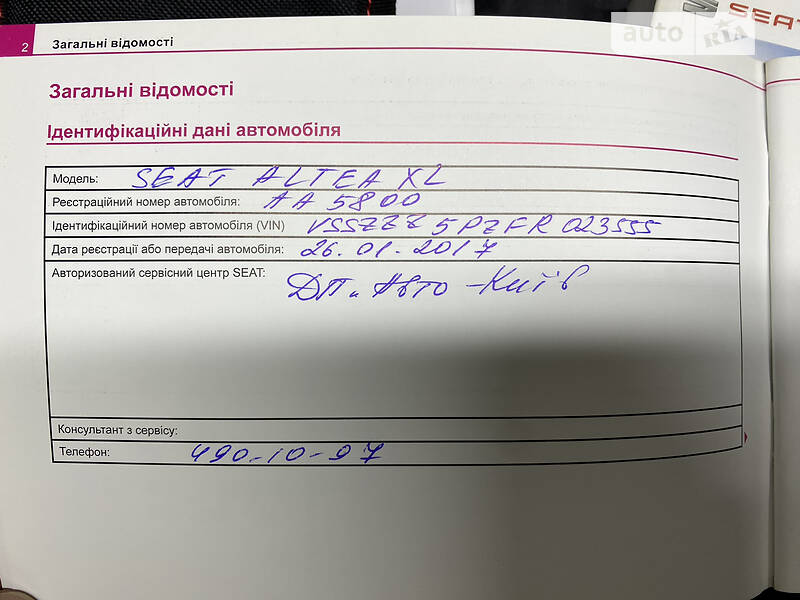 SEAT
auto RIA
2 Загальні відомості
Загальні відомості
Ідентифікаційні дані автомобіля
Модель: SEAT ALTEA XL
Реєстраційний номер автомобіля: AA 5800
Ідентифікаційний номер автомобіля (VIN) VSSZZZ5PZFR023555
Дата реєстрації або передачі автомобіля: 26.01.2017
Авторизований сервісний центр SEAT: ДП „Авто-Київ
Консультант з сервісу:
Телефон: 490-10-97